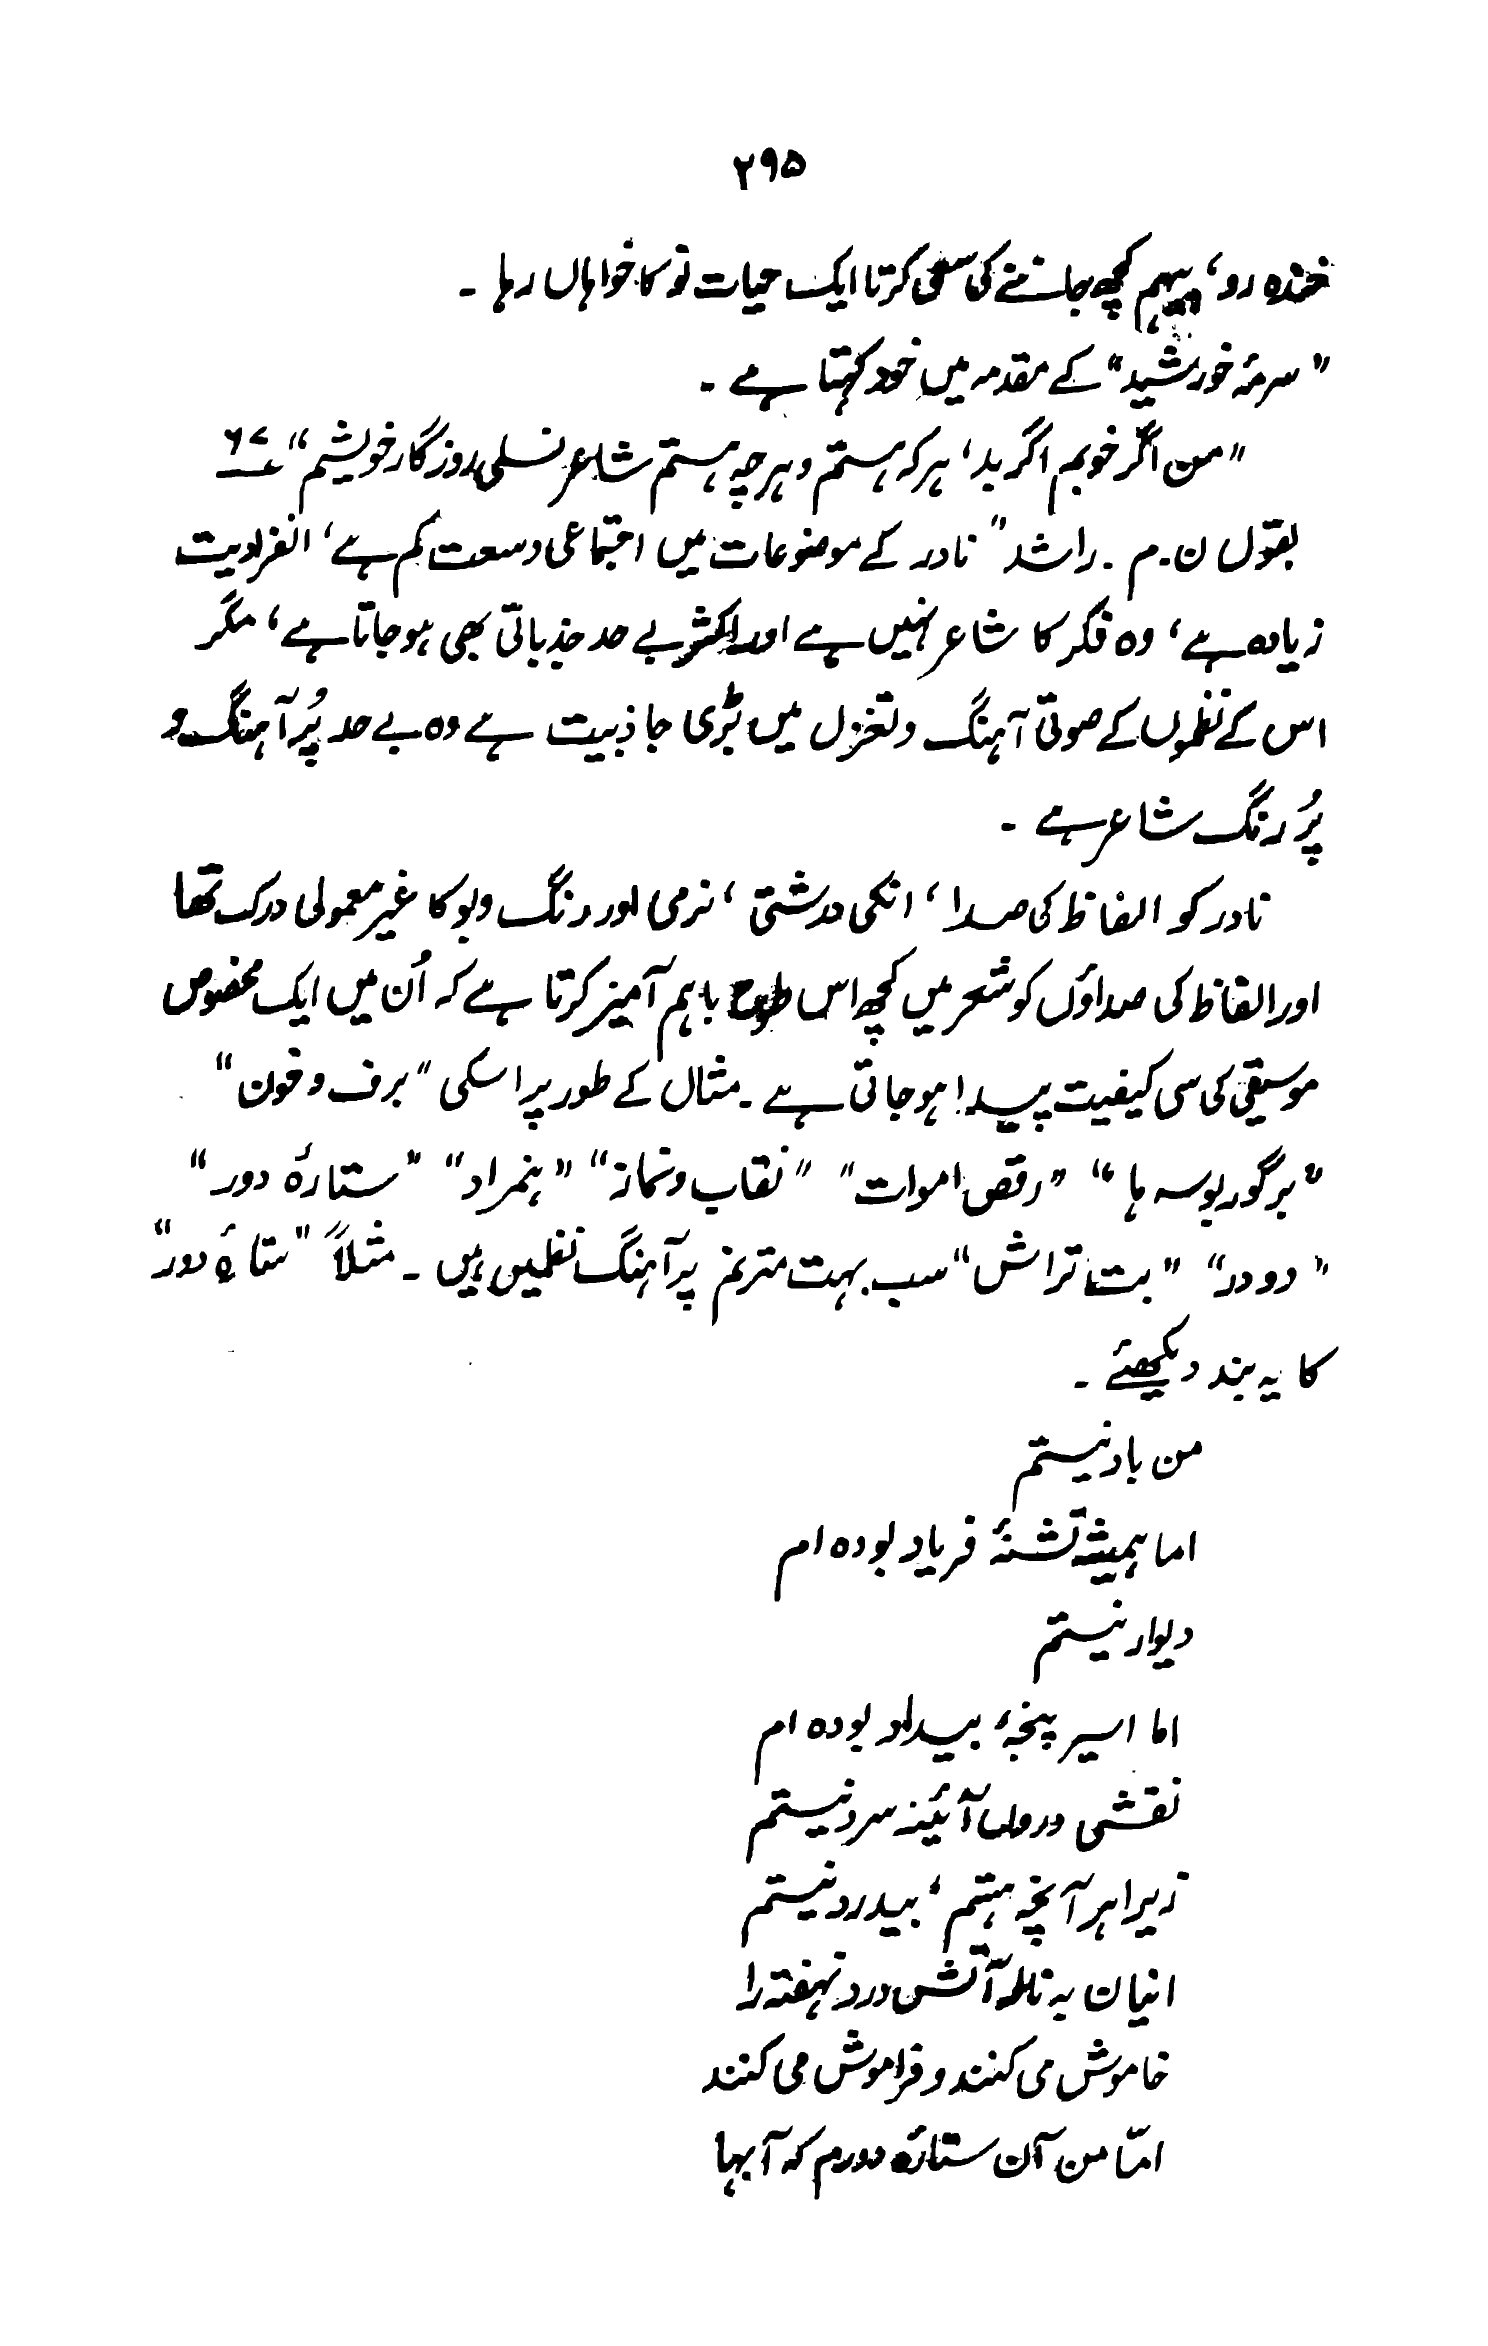 ۲۹۵
خندہ رو، پیہم کچھ جاننے کی سعی کرتا ایک حیات نو کا خواہاں رہا ۔
"سرمۂ خورشید" کے مقدمہ میں خود کہتا ہے ۔
"من اگر خوبم اگر بد، ہر کہ ہستم و ہر چہ ہستم شاعر نسلی روزگار خویشم" ۶۷؎
بقول ن۔م۔ راشد "نادر کے موضوعات میں اجتماعی وسعت کم ہے، انفرادیت
زیادہ ہے، وہ فکر کا شاعر نہیں ہے اور اکثر بے حد جذباتی بھی ہو جاتا ہے، مگر
اس کے نظموں کے صوتی آہنگ و تغزل میں بڑی جاذبیت ہے وہ بے حد پُر آہنگ و
پُر رنگ شاعر ہے ۔
نادر کو الفاظ کی صدا، انکی درشتی، نرمی اور رنگ و بو کا غیر معمولی درک تھا
اور الفاظ کی صداؤں کو شعر میں کچھ اس طرح باہم آمیز کرتا ہے کہ اُن میں ایک مخصوص
موسیقی کی سی کیفیت پیدا ہو جاتی ہے ۔ مثال کے طور پر اسکی "برف و خون"
"برگور بوسہ ہا" "رقص اموات" "نقاب و نماز" "ہنمراد" "ستارۂ دور"
"دو در" "بت تراش" سب بہت مترنم پر آہنگ نظمیں ہیں ۔ مثلاً "ستارۂ دور"
کا یہ بند دیکھئے ۔
من باد نیستم
اما ہمیشہ تشنۂ فریاد بودہ ام
دیوار نیستم
اما اسیر پنجۂ بیداد بودہ ام
نقشی درون آئینہ سرد نیستم
زیرا ہر آنچہ ہستم، بیدرد نیستم
اینان بہ نالہ آتش درد نہفتہ را
خاموش می کنند و فراموش می کنند
امّا من آن ستارۂ دورم کہ آبہا